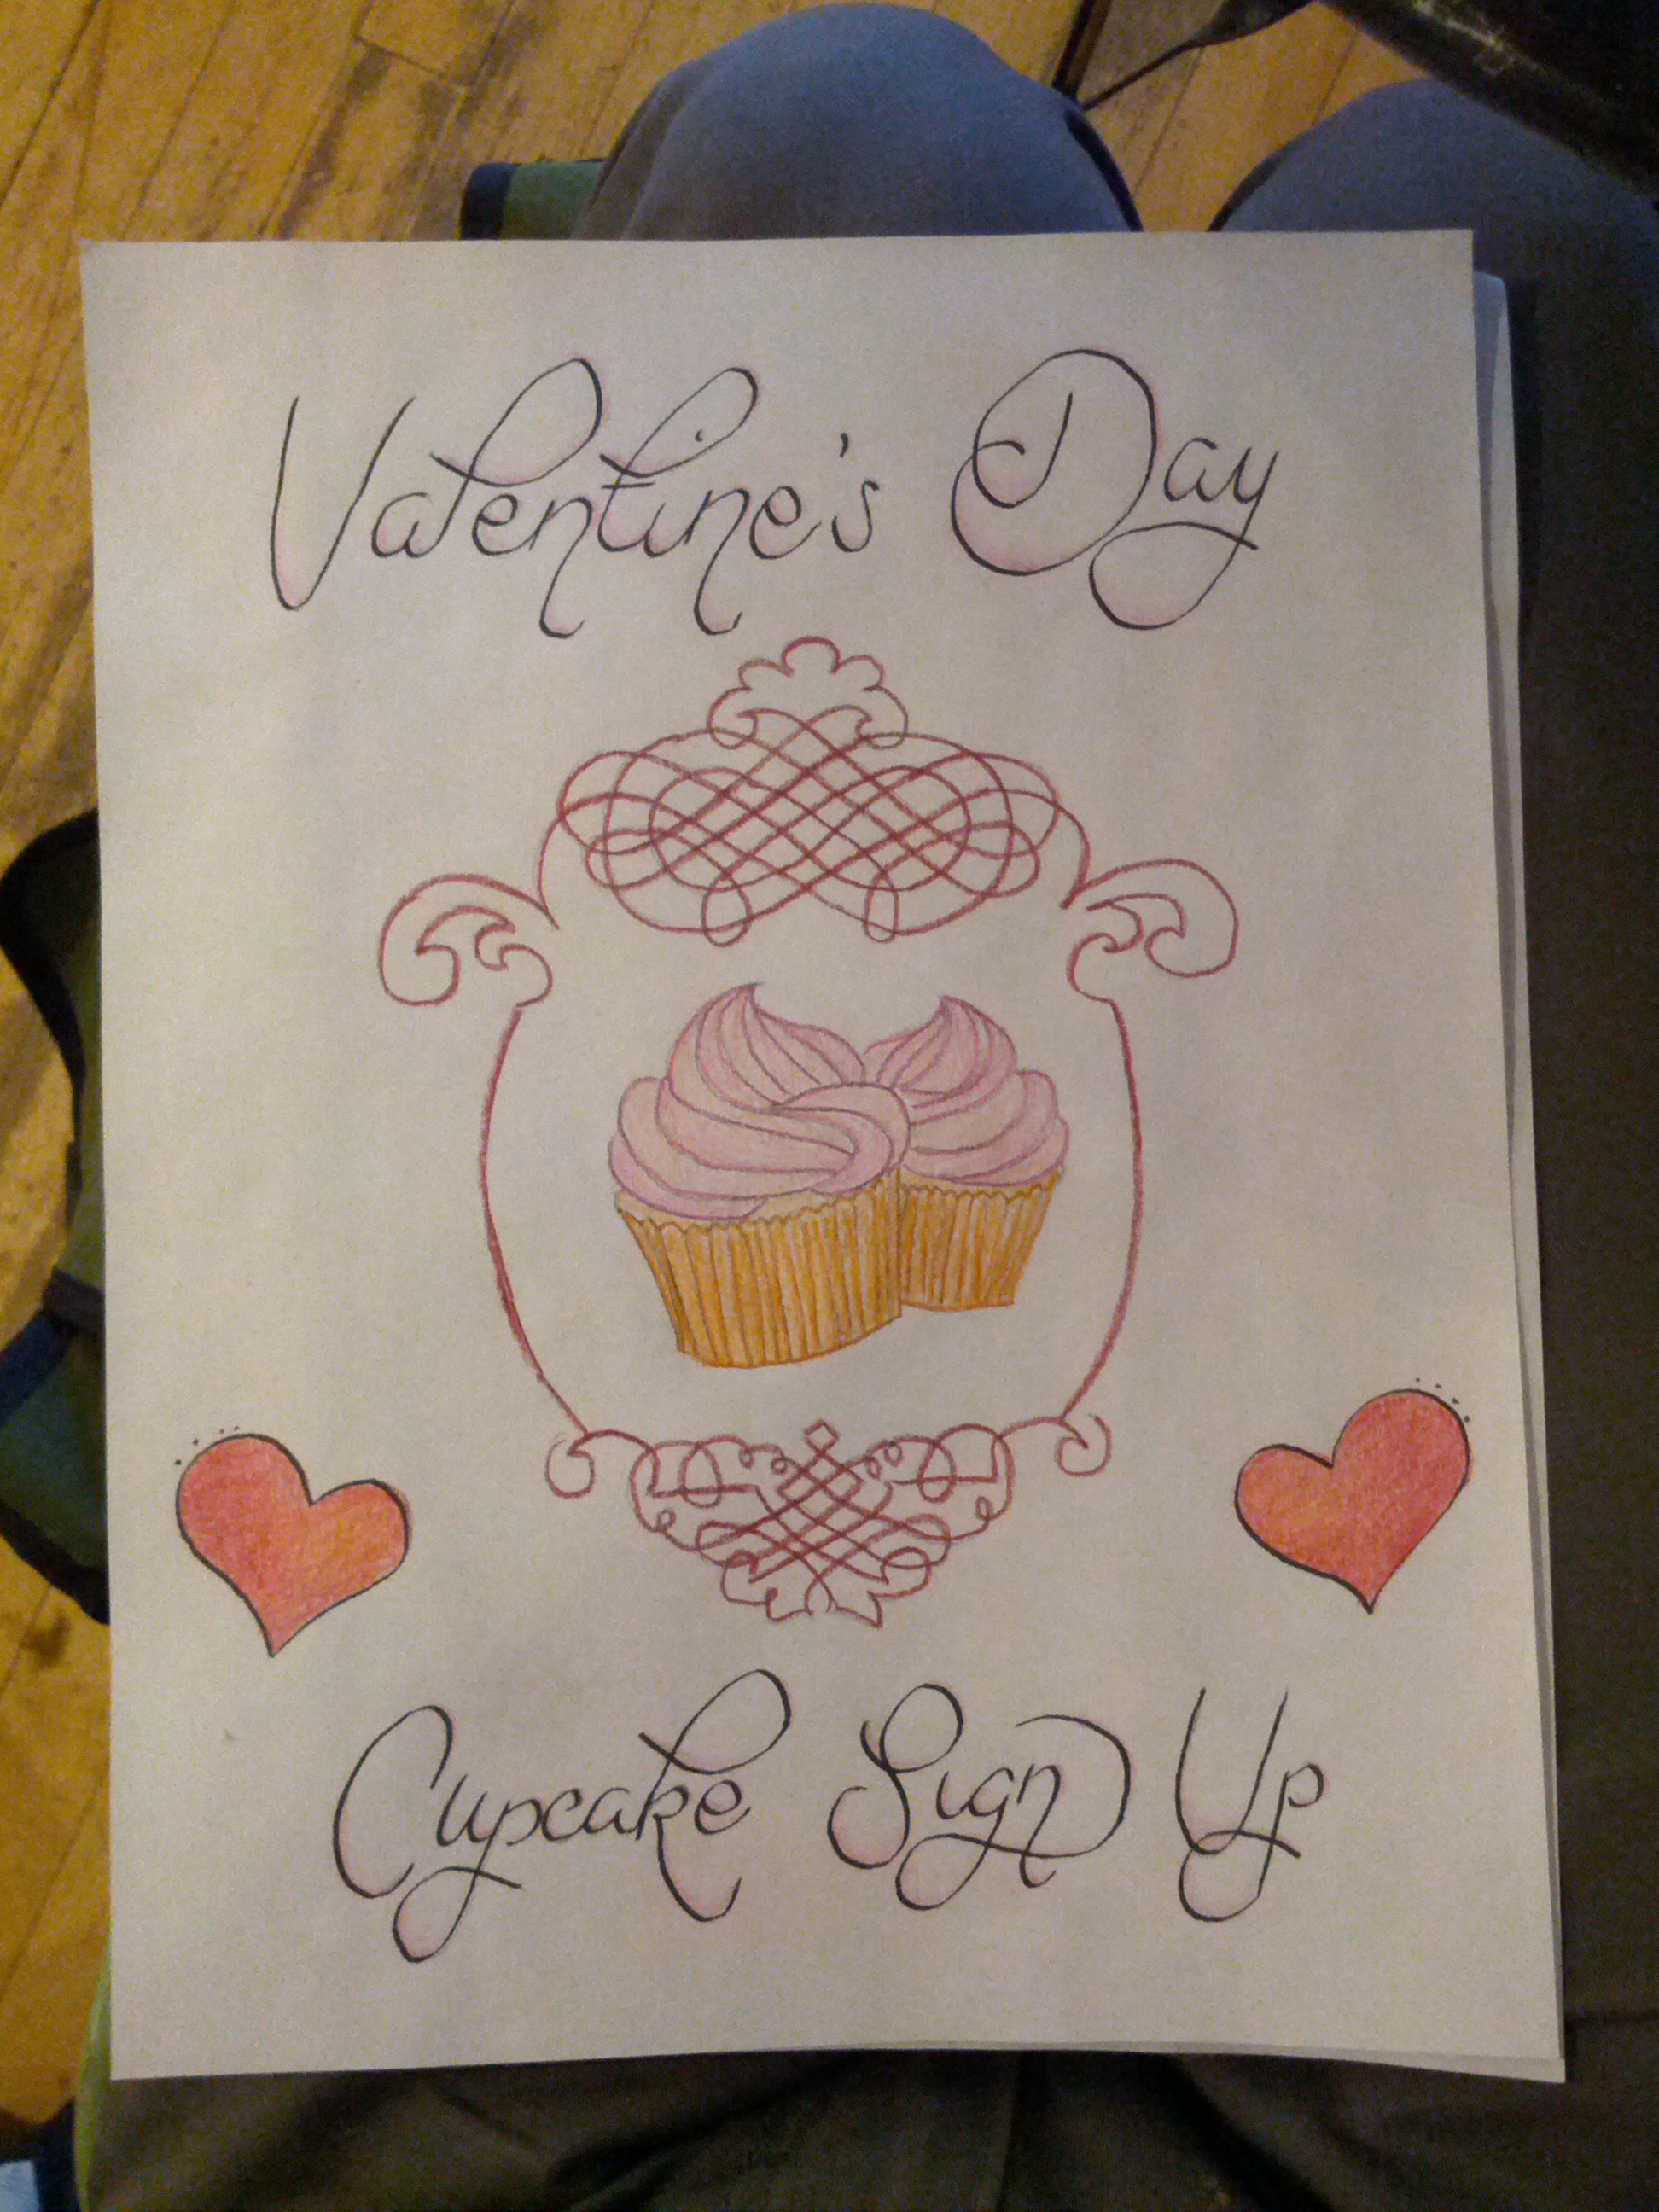 Valentine's Day
Cupcake Sign Up